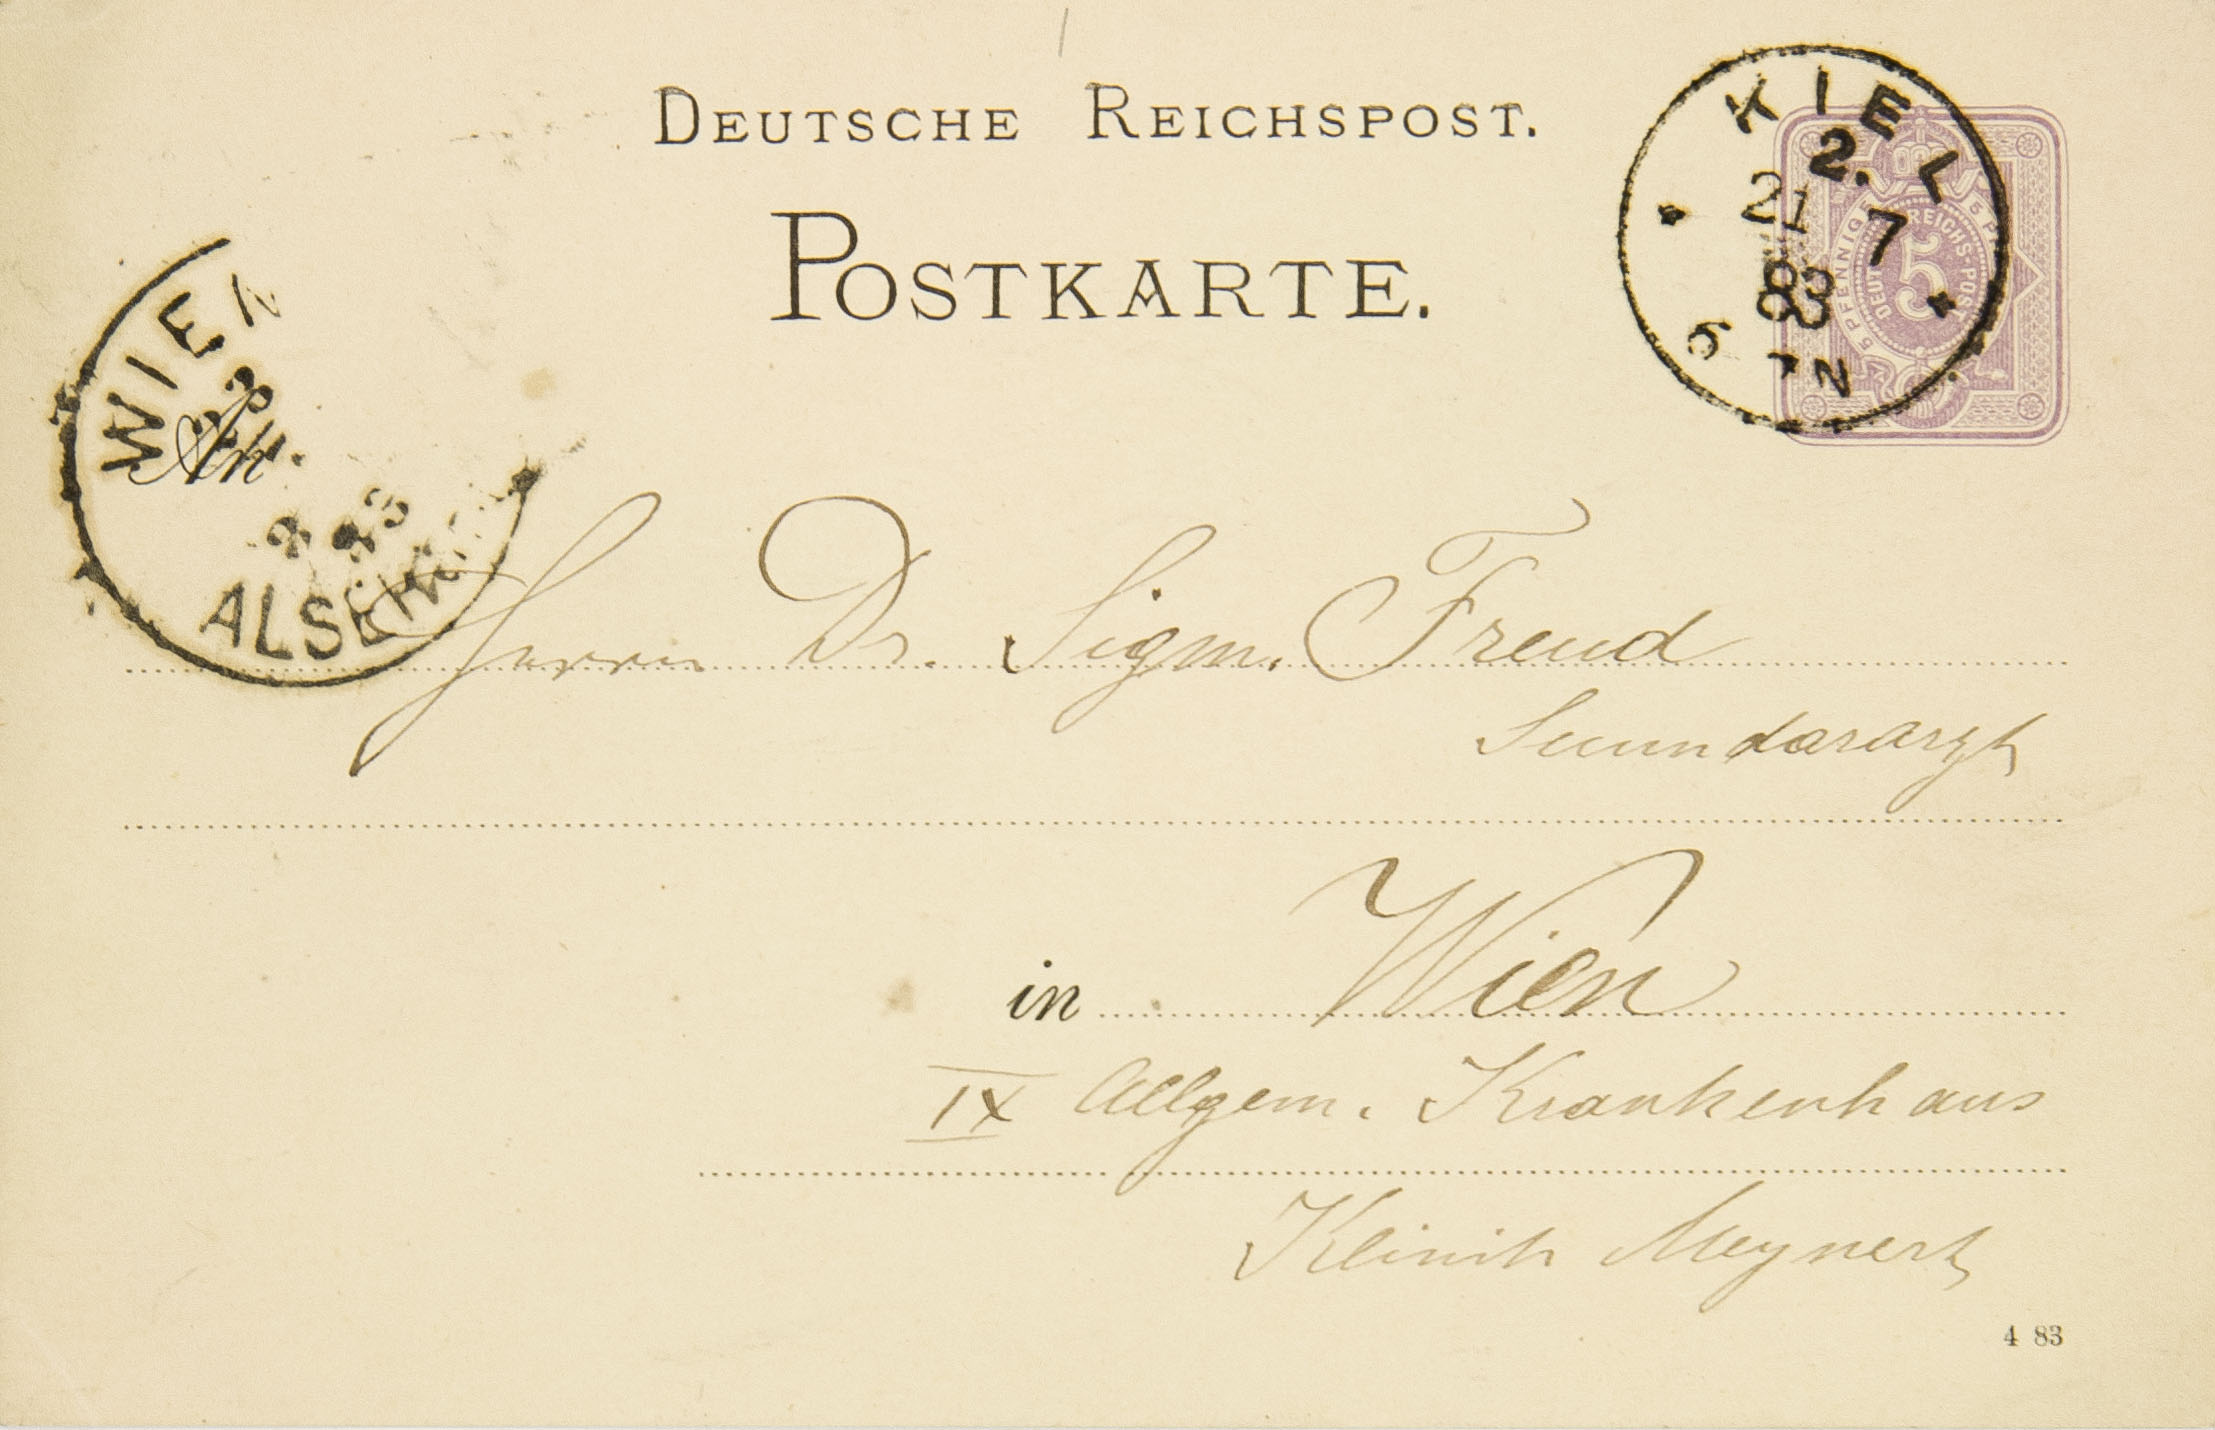 DEUTSCHE REICHSPOST.
POSTKARTE.
KIEL
2.
21 7
83
6-7N
5 PFENNIG
DEUTSCHE REICHS-POST
5
WIEN
An
ALSERG
Herrn Dr. Sigm. Freud
Secundararzt
in Wien
IX Allgem. Krankenhaus
Klinik Meynert
4 83